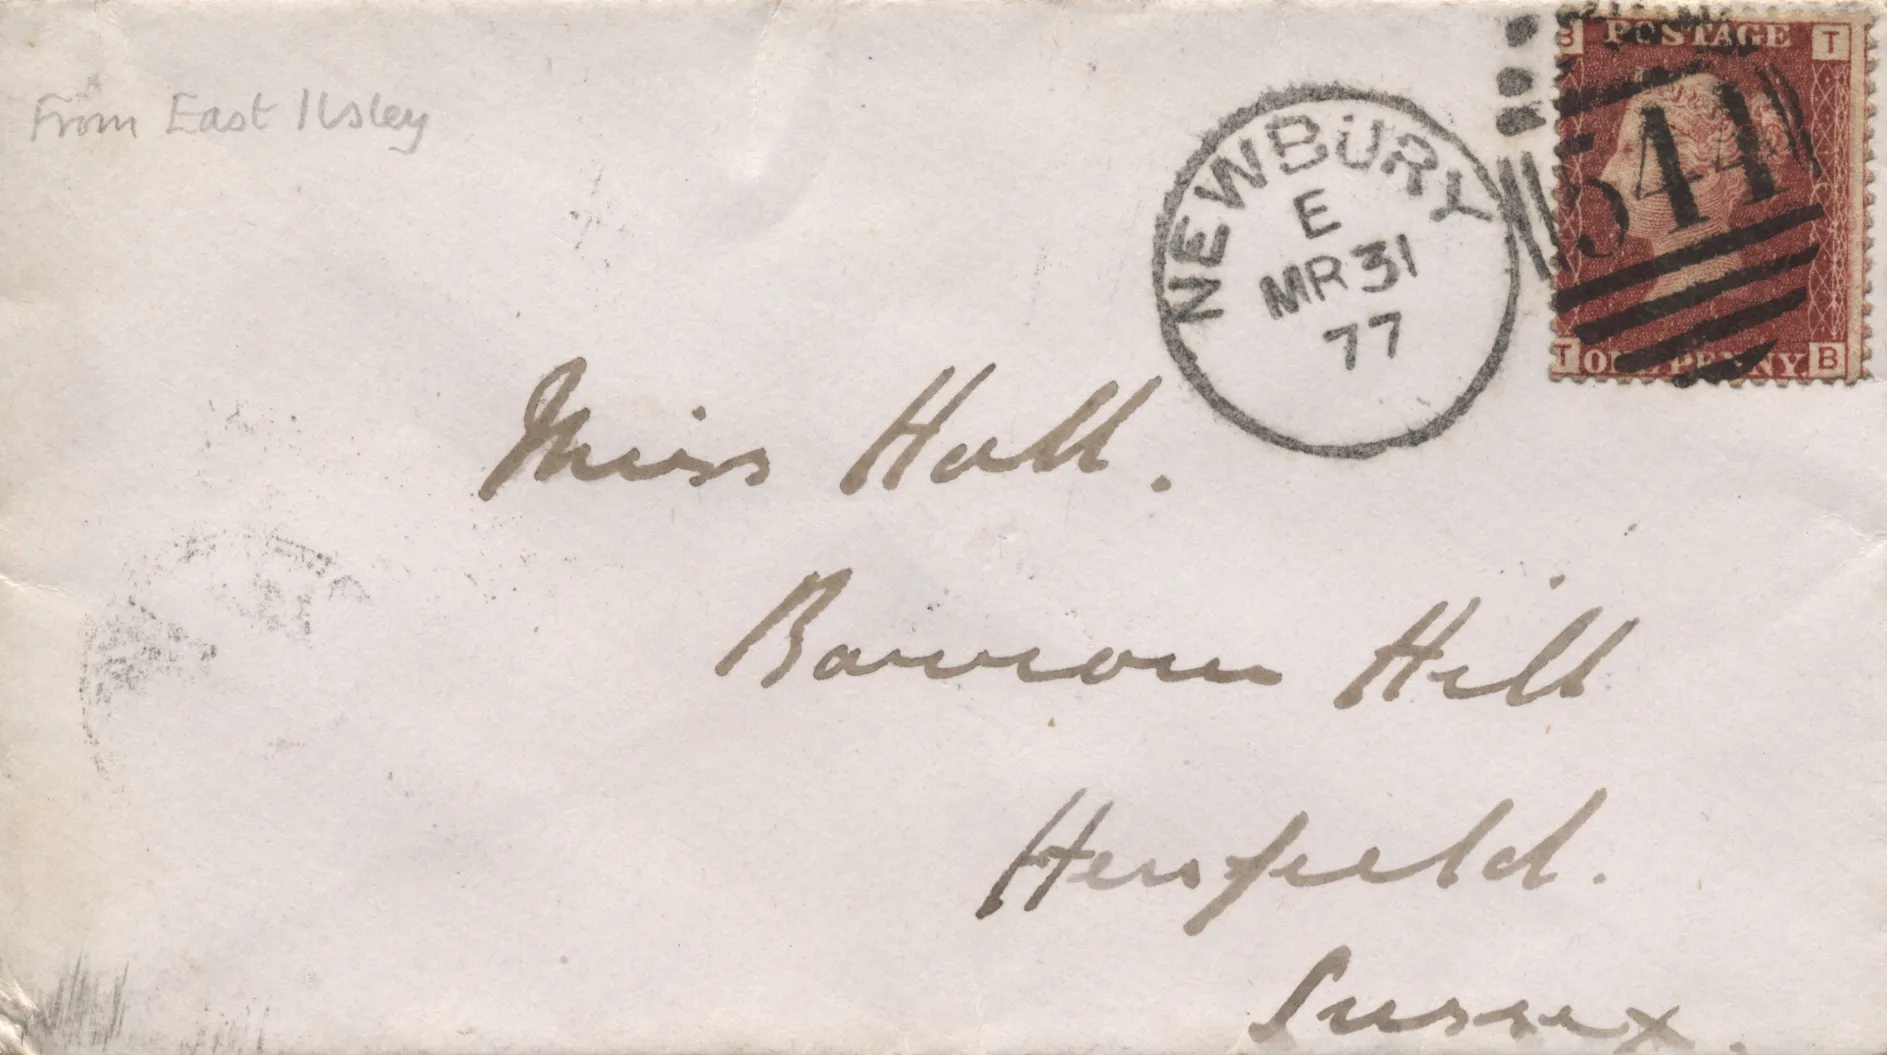 From East Ilsley
B POSTAGE T
544
NEWBURY
E
MR 31
77
T ONE PENNY B
Miss Hall.
Barrow Hill
Henfield.
Sussex.